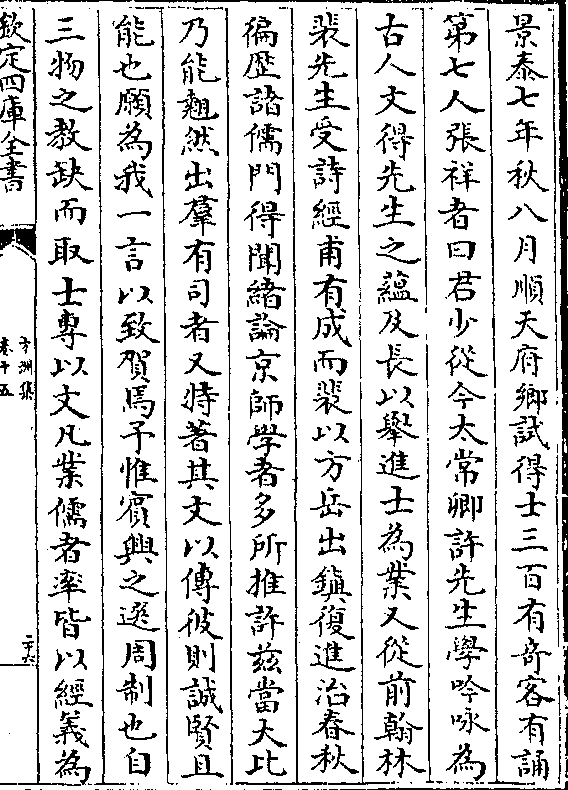 景泰七年秋八月順天府鄉試得士三百有奇客有誦
第七人張祥者曰君少從今太常卿許先生學吟咏為
古人文得先生之蘊及長以舉進士為業又從前翰林
裴先生受詩經甫有成而裴以方岳出鎮復進治春秋
徧歴諸儒門得聞緒論京師學者多所推許兹當大比
乃能翹然出羣有司者又特著其文以傳彼則誠賢且
能也願為我一言以致賀焉予惟賓興之選周制也自
三物之教缺而取士專以文凡業儒者率皆以經義為
欽定四庫全書
方洲集
卷十五
二十六